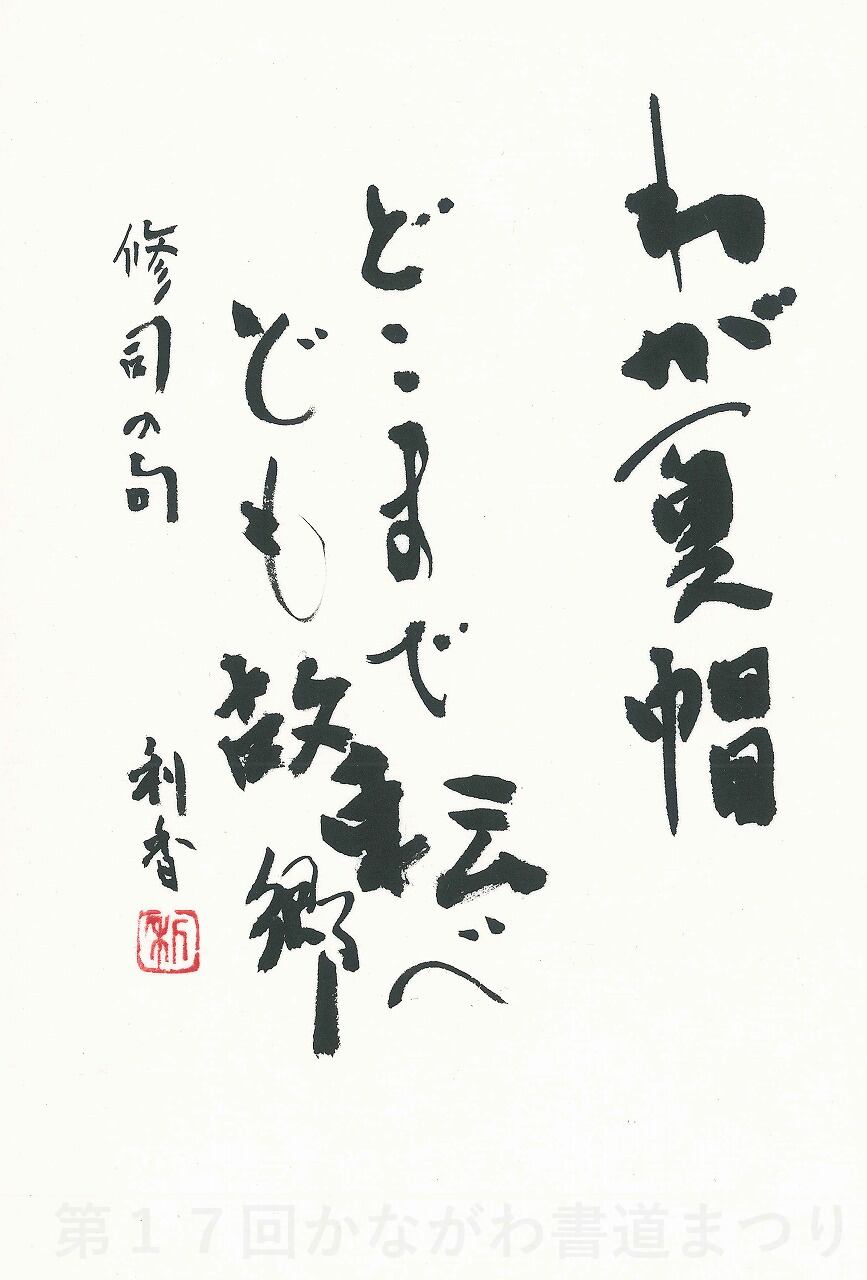 わが夏帽
どこまで転べ
ども故郷
修司の句
利香
第１７回かながわ書道まつり